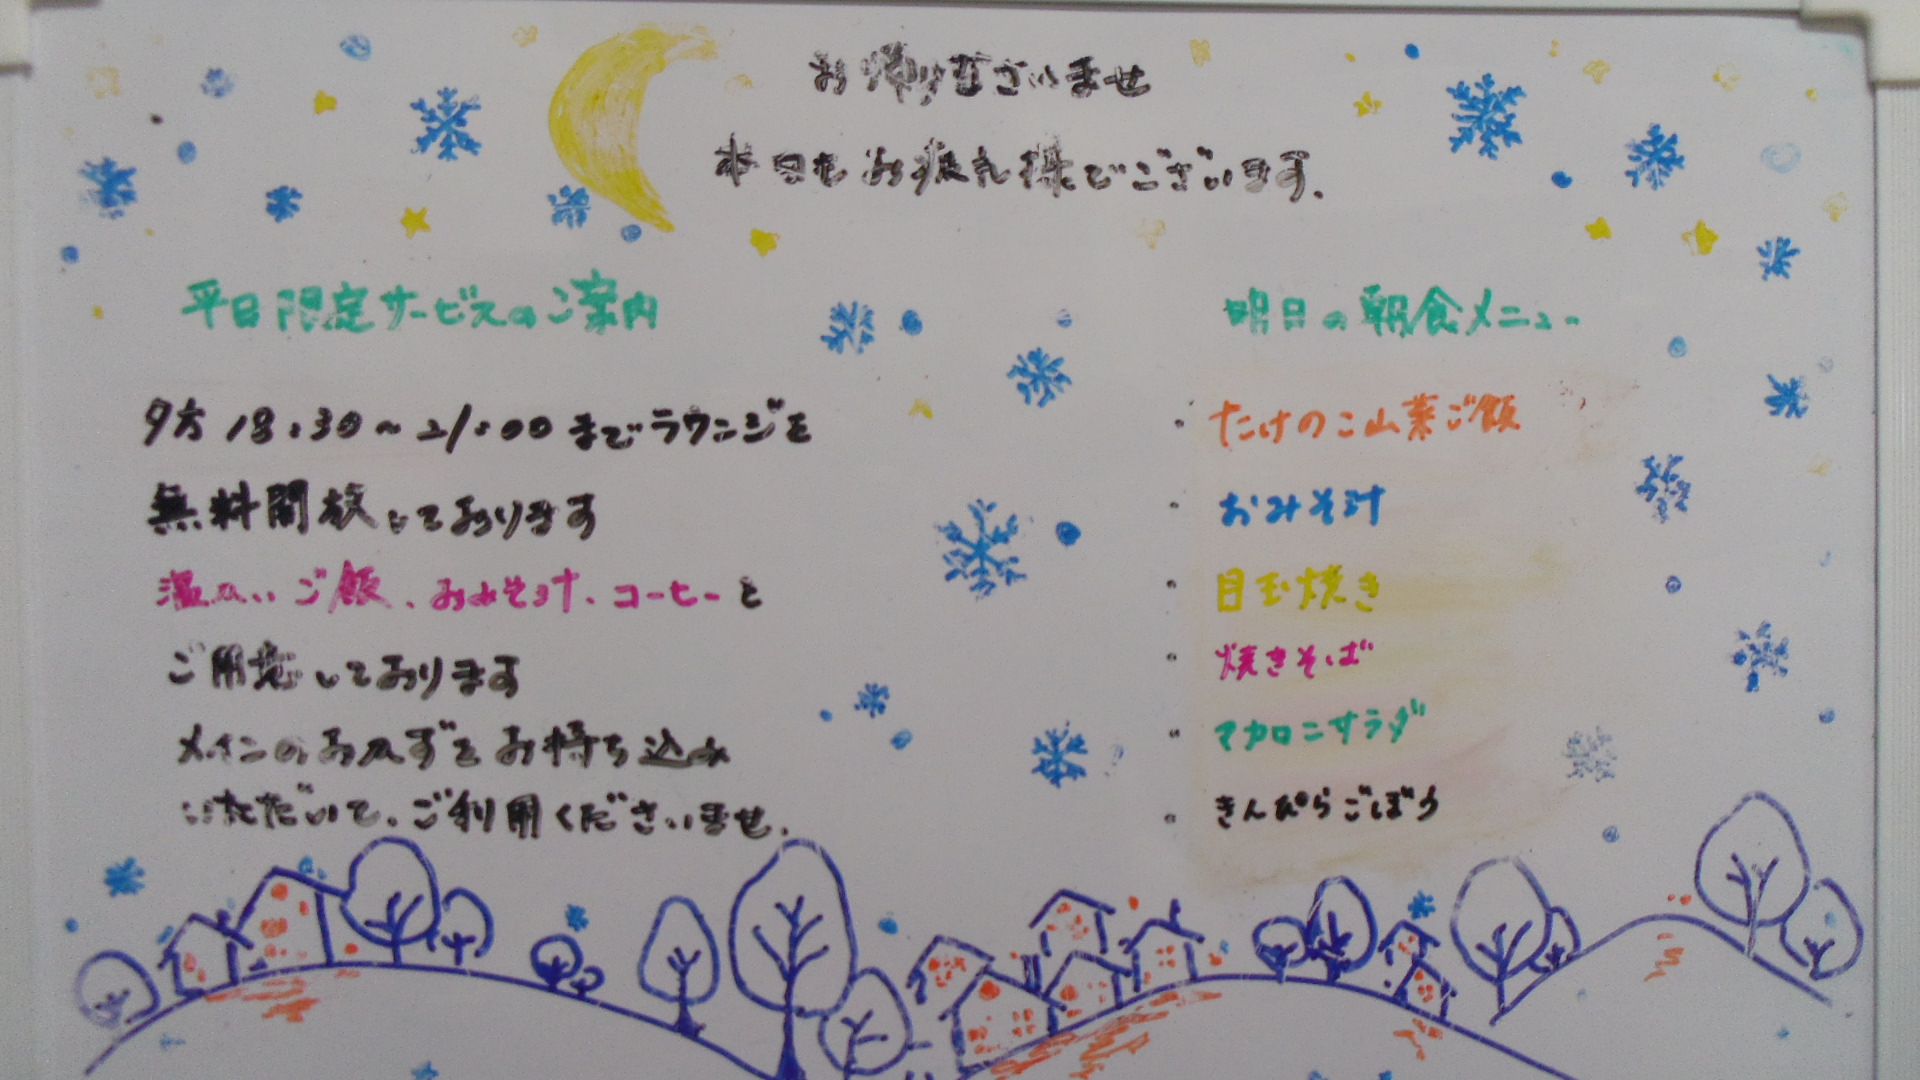 お帰りなさいませ
本日もお疲れ様でございます.
平日限定サービスのご案内
夕方 18:30～21:00までラウンジを
無料開放しております
温かいご飯、おみそ汁、コーヒーを
ご用意しております
メインのおかずをお持ち込み
いただいて、ご利用くださいませ.
明日の朝食メニュー
・たけのこ山菜ご飯
・おみそ汁
・目玉焼き
・焼きそば
・マカロニサラダ
・きんぴらごぼう